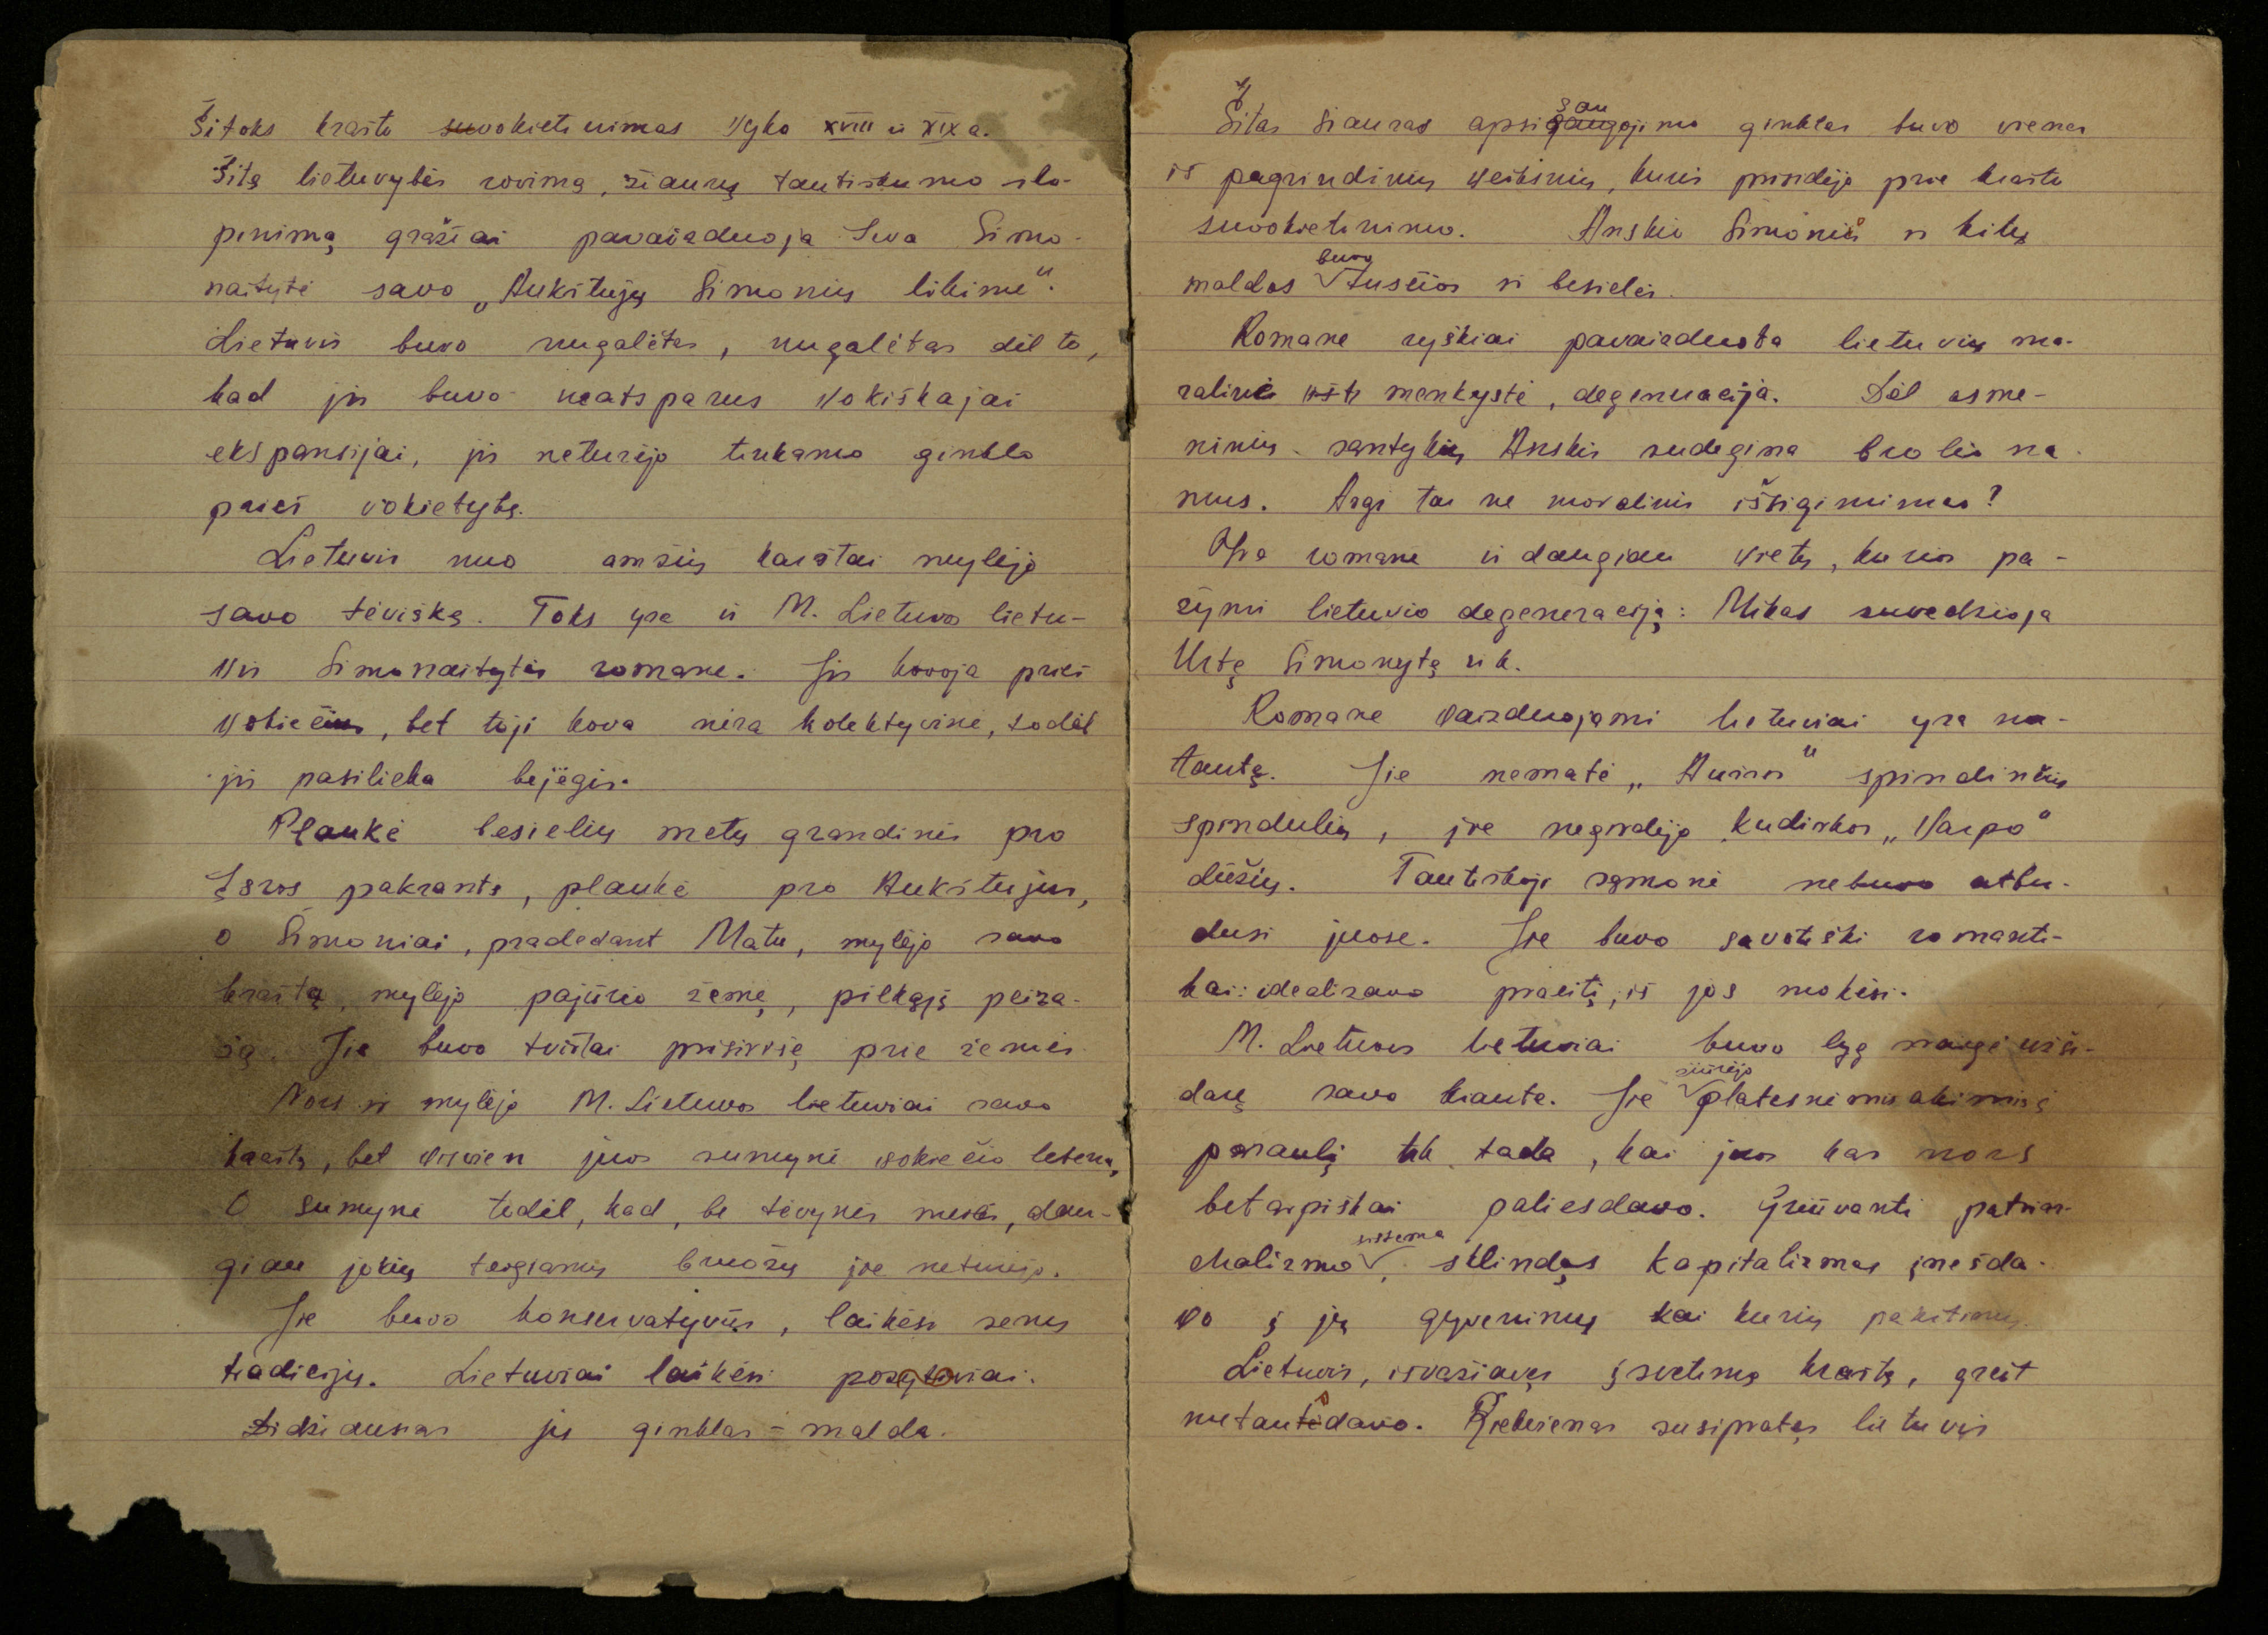 Šitoks krašto suvokietinimas vyko XVIII ir XIX a.
Šitą lietuvybės rovimą, žiaurų tautiškumo slo-
pinimą gražiai pavaizduoja Ieva Simo-
naitytė savo „Aukštujų Šimonių likime".
Lietuvis buvo nugalėtas, nugalėtas dėl to,
kad jis buvo neatsparus vokiškajai
ekspansijai, jis neturėjo tinkamo ginklo
prieš vokietybę.
Lietuvis nuo amžių karštai mylėjo
savo tėviškę. Toks yra ir M. Lietuvos lietu-
vis Simonaitytės romane. Jis kovoja prieš
vokiečius, bet toji kova nėra kolektyvinė, todėl
jis pasilieka bejėgis.
Plaukė besielių metų grandinės pro
Įsros pakrantę, plaukė pro Aukštujus,
o Šimoniai, pradedant Matu, mylėjo savo
kraštą, mylėjo pajūrio žemę, pilkąjį peiza-
žą. Jie buvo tvirtai prisirišę prie žemės.
Nors ir mylėjo M. Lietuvos lietuviai savo
kraštą, bet visvien juos sumynė vokiečio letena,
O sumynė todėl, kad, be tėvynės meilės, dau-
giau jokių teigiamų bruožų jie neturėjo.
Jie buvo konservatyvūs, laikėsi senų
tradicijų. Lietuviai laikėsi pasyviai.
Didžiausias jų ginklas – malda.
Šitas siauras apsisaugojimo ginklas buvo vienas
iš pagrindinių veiksnių, kuris prisidėjo prie krašto
suvokietinimo. Anskio Šimonio ir kitų
maldos buvo tuščios ir besielės.
Romane ryškiai pavaizduota lietuvių mo-
ralinė menkystė, degeneracija. Dėl asme-
ninių santykių Anskis sudegina brolio na-
mus. Argi tai ne moralinis išsigimimas?
Yra romane ir daugiau vietų, kurios pa-
žymi lietuvio degeneraciją: Mikas suvedžioja
Urtę Šimonytę ir k.
Romane vaizduojami lietuviai yra nu-
tautę. Jie nematė „Aušros" spindinčių
spindulių, jie negirdėjo Kudirkos „Varpo"
dūžių. Tautiškoji sąmonė nebuvo atbu-
dusi juose. Jie buvo savotiški romanti-
kai: idealizavo praeitį, iš jos mokėsi.
M. Lietuvos lietuviai buvo lyg sraigė užsi-
darę savo kiaute. Jie žiūrėjo platesnėmis akimis į
pasaulį tik tada, kai juos kas nors
betarpiškai paliesdavo. Griūvanti patriar-
chalizmo sistema, sklindąs kapitalizmas įnešda-
vo į jų gyvenimą kai kurių pakitimų.
Lietuvis, išvažiavęs į svetimą kraštą, greit
nutautėdavo. Kiekvienas susipratęs lietuvis